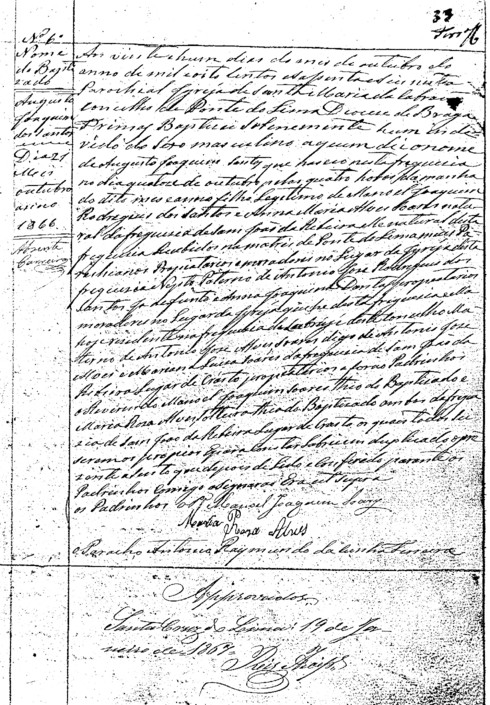 33
Nº 6º
Nome
do Bapti
zado
Augusto
Joaquim
dos Santos
Dia 21
Mes
outubro
anno
1866
Aos vinte hum dias do mes de outubro do
anno de mil oito centos e sesenta e seis nesta
Parochial Igreja de Santa Maria da
concelho de Ponte do Lima Diocese de Braga
Primaz Baptizei Solenemente hum indi
viduo do sexo masculino aquem dei o nome
de Augusto Joaquim Santos que nasceo nesta freguezia
no dia quatorze de outubro pelas quatro horas da manha
do dito mes e anno filho Legitimo de Manoel Joaquim
Rodrigues dos Santos e Anna Maria Alves Soares natu
ral da freguezia de Sam João da Ribeira
freguezia Recebidos na matris de Ponte do Lima
rochianos Proprietarios e moradores no Lugar da Igreja desta
freguezia Neto Paterno de Antonio José Rodrigues dos
Santos ja defunto e Anna Joaquina Dantas proprietarios
moradores no Lugar da Igreja desta freguezia e
hoje rezidente na freguezia de deste concelho Ma
terno de Antonio José Alves Soares digo de Antonio José
Alves e Mariana Luiza Soares da freguezia de Sam João da
Ribeira Lugar de Crasto proprietarios e foram Padrinhos
o Reverendo Manoel Joaquim Soares Thio do Baptizado e
Maria Roza Alves Solteira Thia do Baptizado ambos da fregue
zia de Sam João da Ribeira Lugar de Crasto os quais todos
serem os proprios E para constar Labrei em duplicado o pre
zente asento que depois de Lido e Conferido perante os
Padrinhos Comigo asignaram Era ut Supra
os Padrinhos Pe Manoel Joaquim Soares
Maria Roza Alves
o Parocho Antonio Raymundo da Cunha Ferreira
Approvados
Santa Cruz do Lima 19 de Ja
neiro de 1867